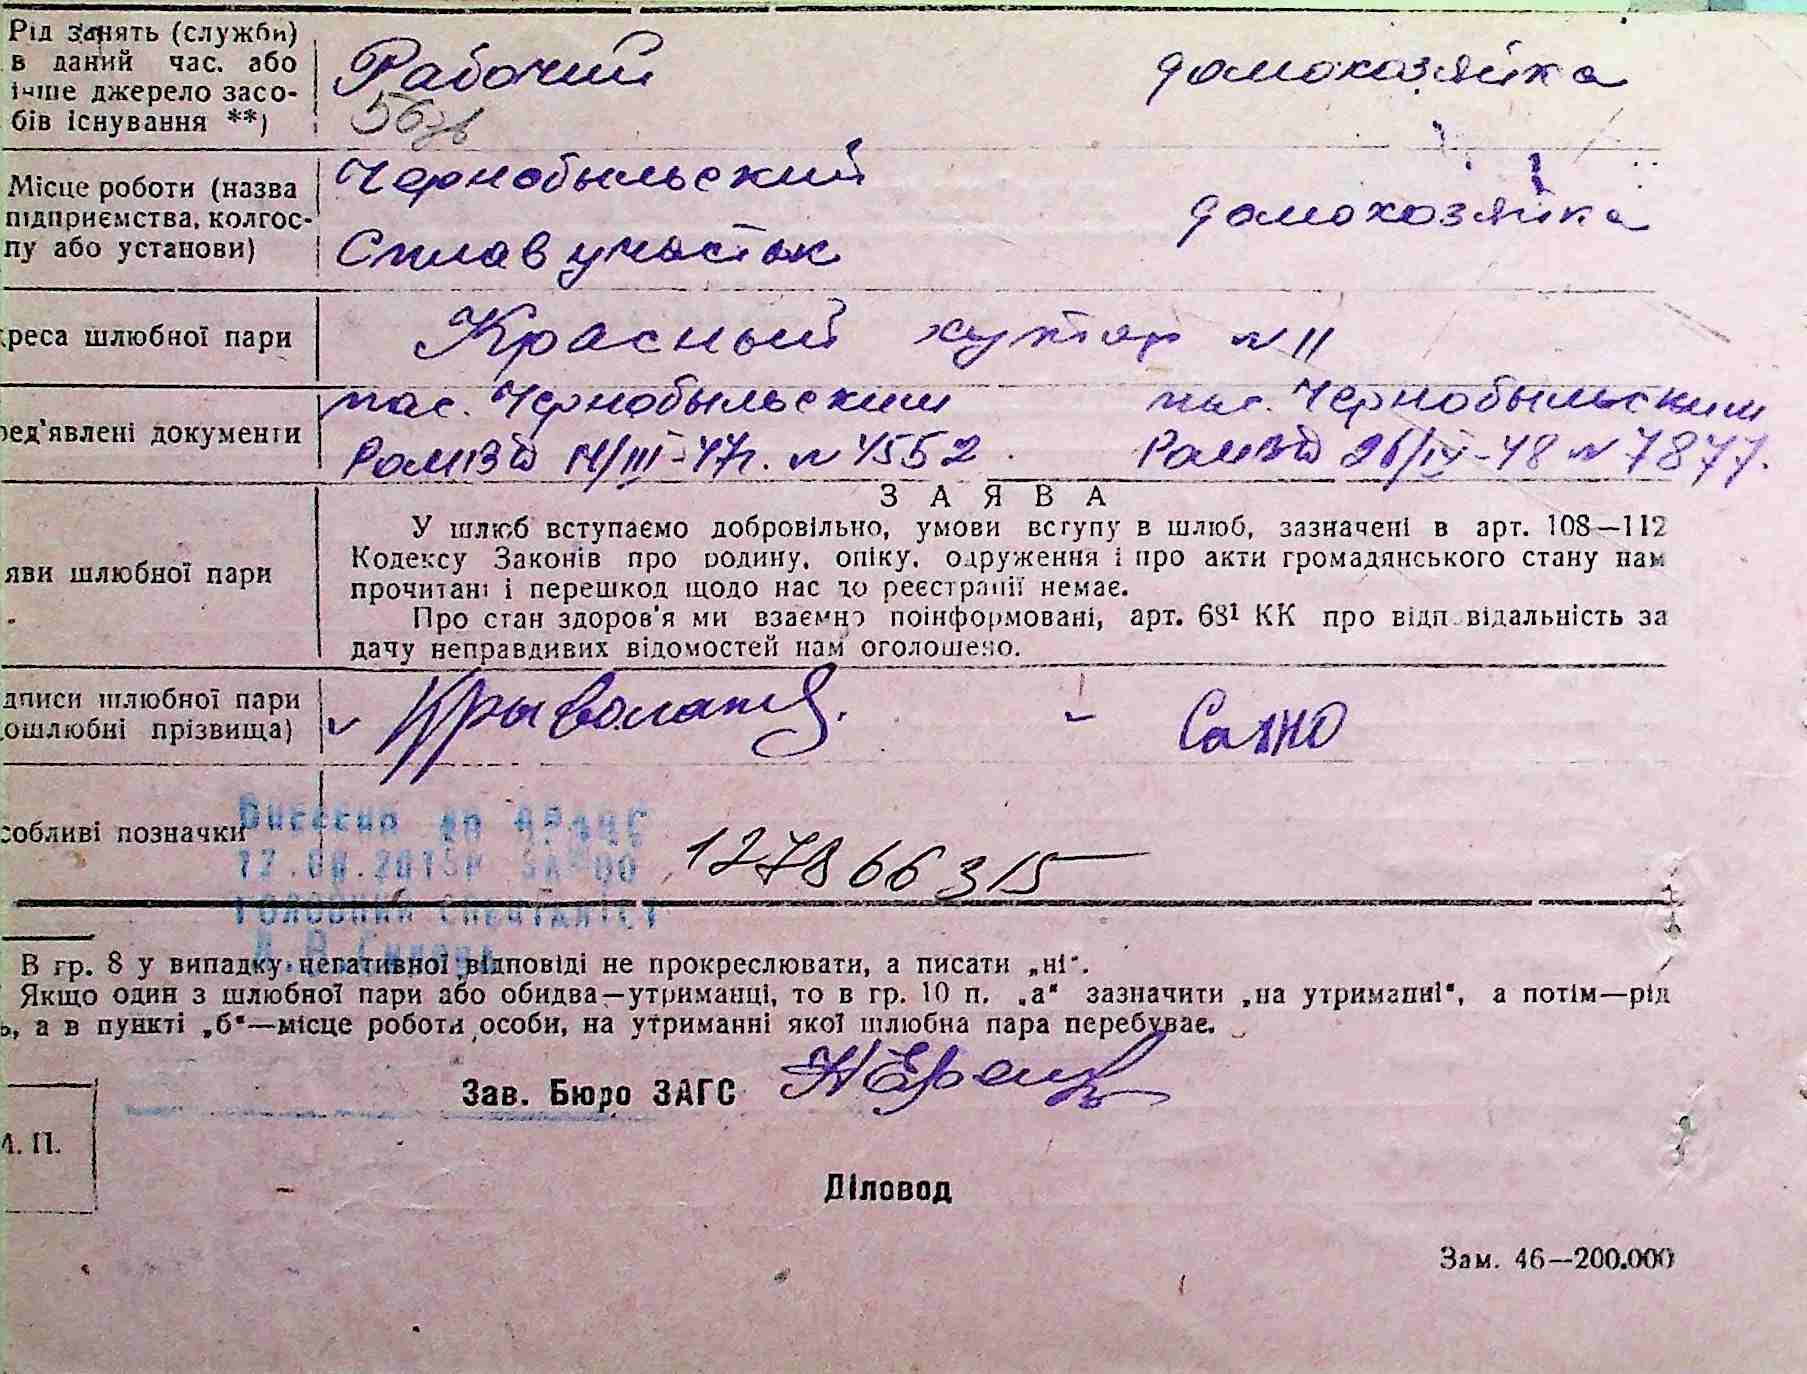 Рід занять (служби) в даний час, або інше джерело засо-бів існування **)
Рабочий домохозяйка
Місце роботи (назва підприємства, колгос-пу або установи)
Чернобыльский домохозяйка
Сплав участок
реса шлюбної пари Красный хутор N 11
ред'явлені документи пас. Чернобыльским пас. Чернобыльским
N 4552 N 7877.
ЗАЯВА
яви шлюбної пари
У шлюб вступаємо добровільно, умови вступу в шлюб, зазначені в арт. 108—112
Кодексу Законів про родину, опіку, одруження і про акти громадянського стану нам
прочитані і перешкод щодо нас до реєстрації немає.
Про стан здоров'я ми взаємно поінформовані, арт. 68¹ КК про відповідальність за
дачу неправдивих відомостей нам оголошено.
дписи шлюбної пари
ошлюбні прізвища)
собливі позначки
127866315
головний спеціаліст
В гр. 8 у випадку негативної відповіді не прокреслювати, а писати „ні".
Якщо один з шлюбної пари або обидва—утриманці, то в гр. 10 п. „а" зазначити „на утриманні", а потім—рід
ь, а в пункті „б"—місце роботи особи, на утриманні якої шлюбна пара перебуває.
Зав. Бюро ЗАГС
М. П.
Діловод
Зам. 46—200.000